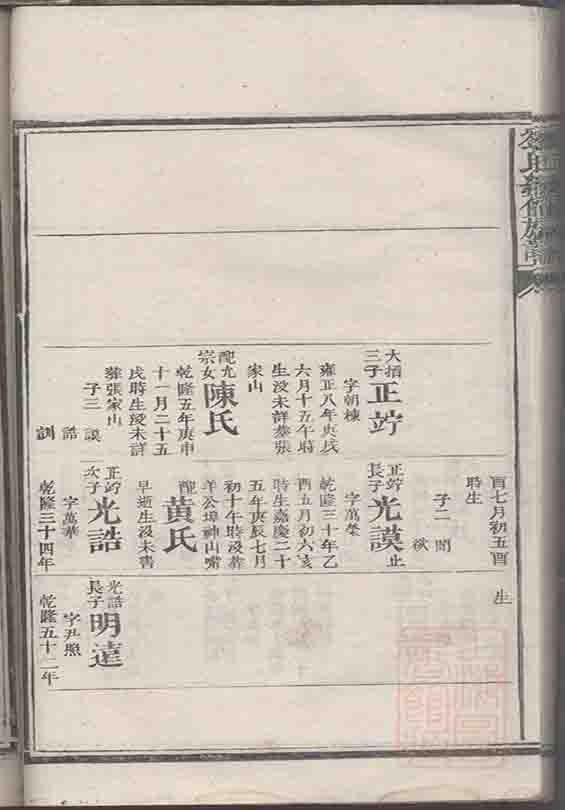 氏續修族譜
大
三子
正竚
字朝棟
雍正八年庚戌
六月十五午時
生没未詳葬張
家山
配九
宗女
陳氏
乾隆五年庚申
十一月二十五
戌時生没未詳
葬張家山
子三 謨
誥
訓
酉七月初五酉
時生
子二 聞
欲
正竚
長子
光謨
止
字萬榮
乾隆三十年乙
酉五月初六亥
時生嘉慶二十
五年庚辰七月
初十午時没葬
羊公埠神山嘴
配
黄氏
早逝生没未書
正竚
次子
光誥
字萬華
乾隆三十四年
生
光誥
長子
明遠
字尹照
乾隆五十二年